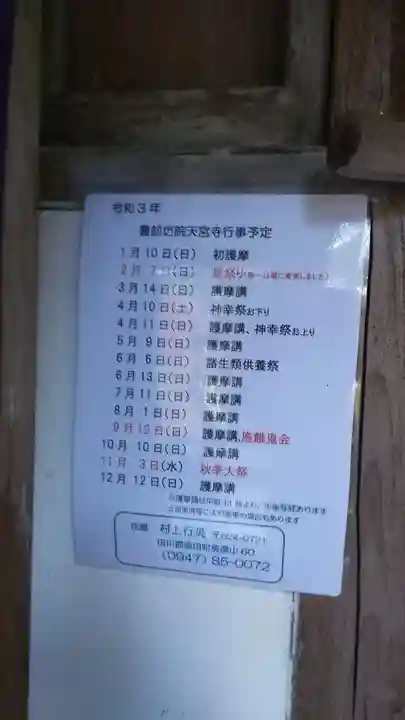 令和3年
豊前坊院天宮寺行事予定
1月10日(日) 初護摩
2月 7日(日) 星祭り
3月14日(日) 護摩講
4月10日(土) 神幸祭お下り
4月11日(日) 護摩講、神幸祭お上り
5月 9日(日) 護摩講
6月 6日(日) 諸生類供養祭
6月13日(日) 護摩講
7月11日(日) 護摩講
8月 1日(日) 護摩講
9月12日(日) 護摩講,施餓鬼会
10月 10日(日) 護摩講
11月 3日(水) 秋季大祭
12月 12日(日) 護摩講
住職 村上行英 〒824-0721
田川郡添田町英彦山60
(0947) 85-0072